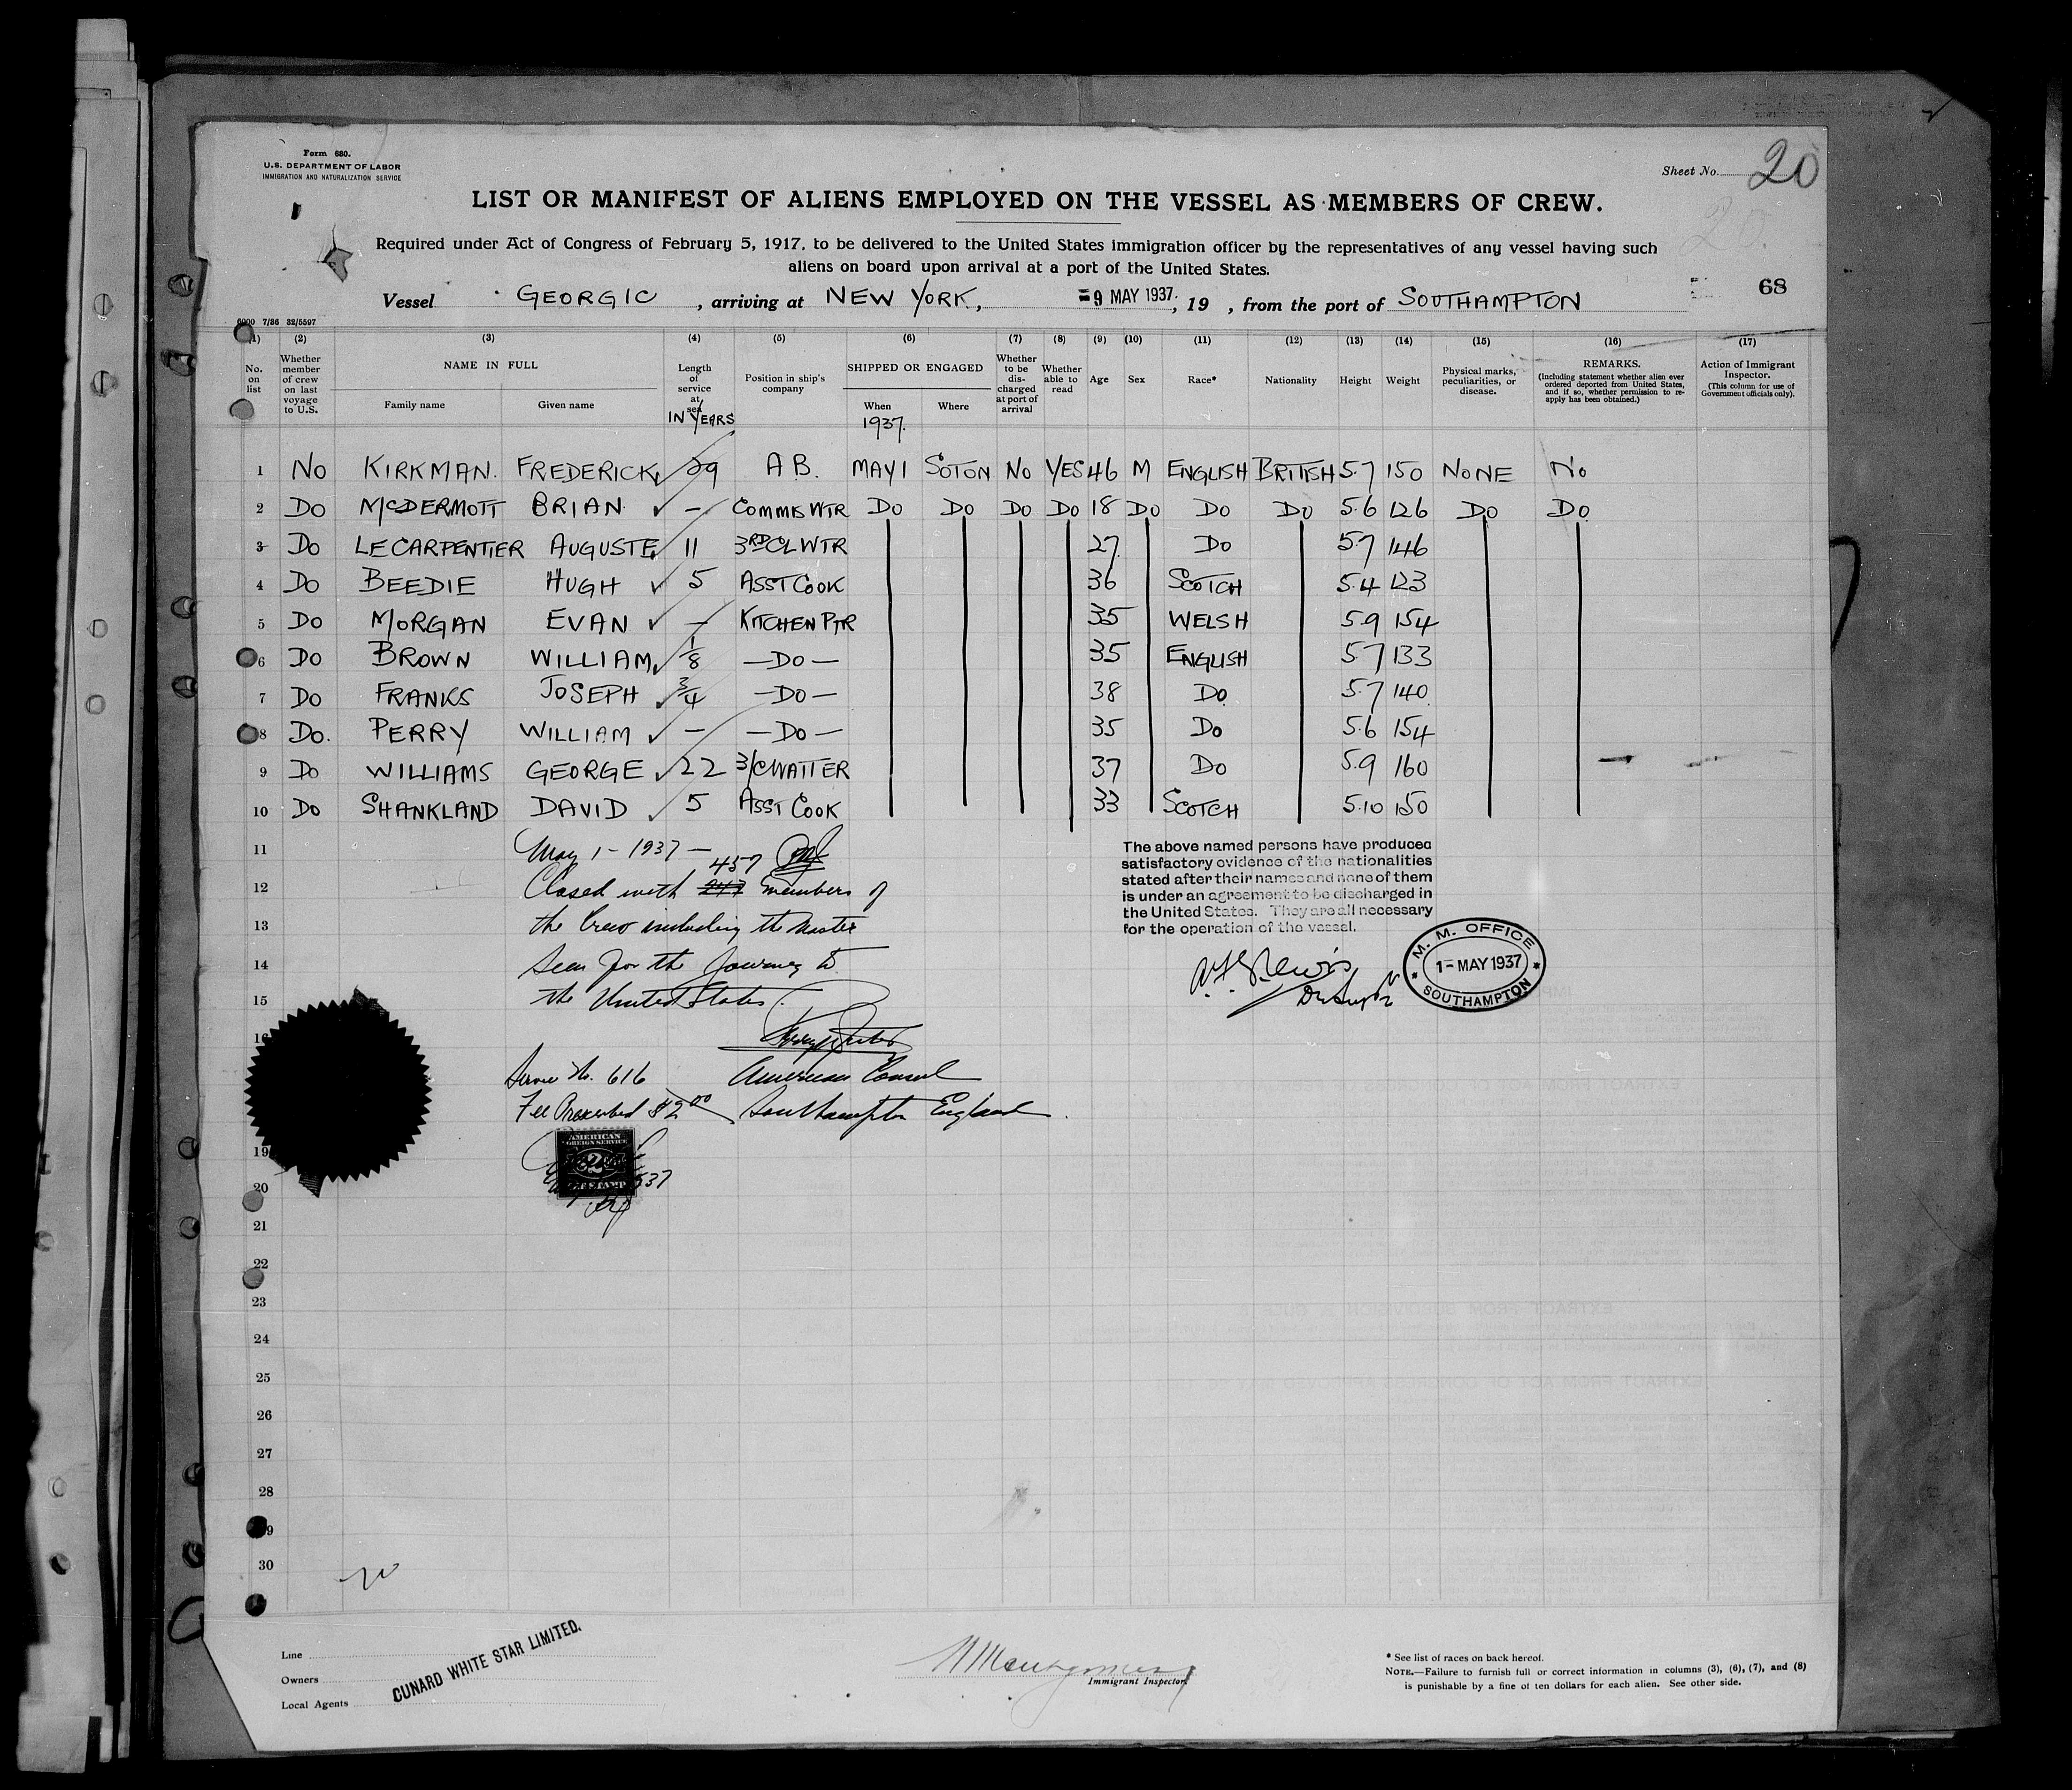 Form 680.
U.S. DEPARTMENT OF LABOR
IMMIGRATION AND NATURALIZATION SERVICE
Sheet No. 20
LIST OR MANIFEST OF ALIENS EMPLOYED ON THE VESSEL AS MEMBERS OF CREW.
20
Required under Act of Congress of February 5, 1917, to be delivered to the United States immigration officer by the representatives of any vessel having such
aliens on board upon arrival at a port of the United States.
68
Vessel GEORGIC, arriving at NEW YORK, 9 MAY 1937, 19 , from the port of SOUTHAMPTON
6000 7/36 32/5597
(1) (2) (3) (4) (5) (6) (7) (8) (9) (10) (11) (12) (13) (14) (15) (16) (17)
No. on list
Whether member of crew on last voyage to U.S.
NAME IN FULL
Family name Given name
Length of service at sea IN YEARS
Position in ship's company
SHIPPED OR ENGAGED
When 1937. Where
Whether to be discharged at port of arrival
Whether able to read
Age Sex Race* Nationality Height Weight
Physical marks, peculiarities, or disease.
REMARKS.
(Including statement whether alien ever ordered deported from United States, and if so, whether permission to re-apply has been obtained.)
Action of Immigrant Inspector.
(This column for use of Government officials only).
1 NO KIRKMAN. FREDERICK 29 A B. MAY 1 SOTON NO YES 46 M ENGLISH BRITISH 5.7 150 NONE NO
2 DO MCDERMOTT BRIAN - COMMIS WTR DO DO DO DO 18 DO DO DO 5.6 126 DO DO
3 DO LE CARPENTIER AUGUSTE 11 3RD CL WTR 27 DO 5.7 146
4 DO BEEDIE HUGH 5 ASST COOK 36 SCOTCH 5.4 123
5 DO MORGAN EVAN - KITCHEN PTR 35 WELSH 5.9 154
6 DO BROWN WILLIAM 1/8 —DO— 35 ENGLISH 5.7 133
7 DO FRANKS JOSEPH 3/4 —DO— 38 DO 5.7 140
8 DO. PERRY WILLIAM - —DO— 35 DO 5.6 154
9 DO WILLIAMS GEORGE 22 3/C WAITER 37 DO 5.9 160
10 DO SHANKLAND DAVID 5 ASST COOK 33 SCOTCH 5.10 150
11 May 1 - 1937 —
457
12 Closed with members of
13 the Crew including the Master
14 Seen for the Journey to
15 the United States.
The above named persons have produced
satisfactory evidence of the nationalities
stated after their names and none of them
is under an agreement to be discharged in
the United States. They are all necessary
for the operation of the vessel.
Lewis
M. M. OFFICE
1 - MAY 1937
SOUTHAMPTON
16
Service No. 616 American Consul
Fee Prescribed $2.00 Southampton England
AMERICAN
FOREIGN SERVICE
2
FEE STAMP
19
20
21
22
23
24
25
26
27
28
29
30
Line
Owners
Local Agents
CUNARD WHITE STAR LIMITED.
Montgomery
Immigrant Inspector
* See list of races on back hereof.
NOTE.—Failure to furnish full or correct information in columns (3), (6), (7), and (8)
is punishable by a fine of ten dollars for each alien. See other side.